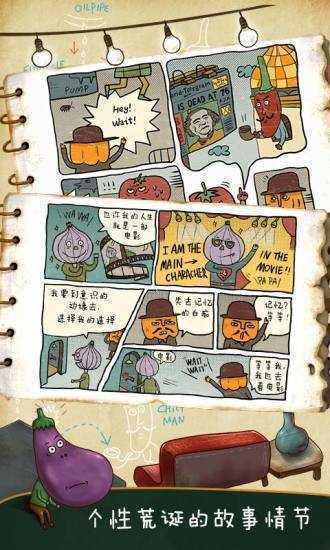 OILPIPE
PUMP
Hey!
Wait!
IS DEAD AT 76
WAWA!
也许我的人生
就是一部
电影
I AM THE
MAIN
CHARACHER
IN THE
MOVIE!!
PAPA!
我要到意识的
边缘去,
选择我的选择
失去记忆
的白痴
记忆?
等等
电影
WAIT,
WAIT!
等等我,
我也去
看电影
MAN
个性荒诞的故事情节